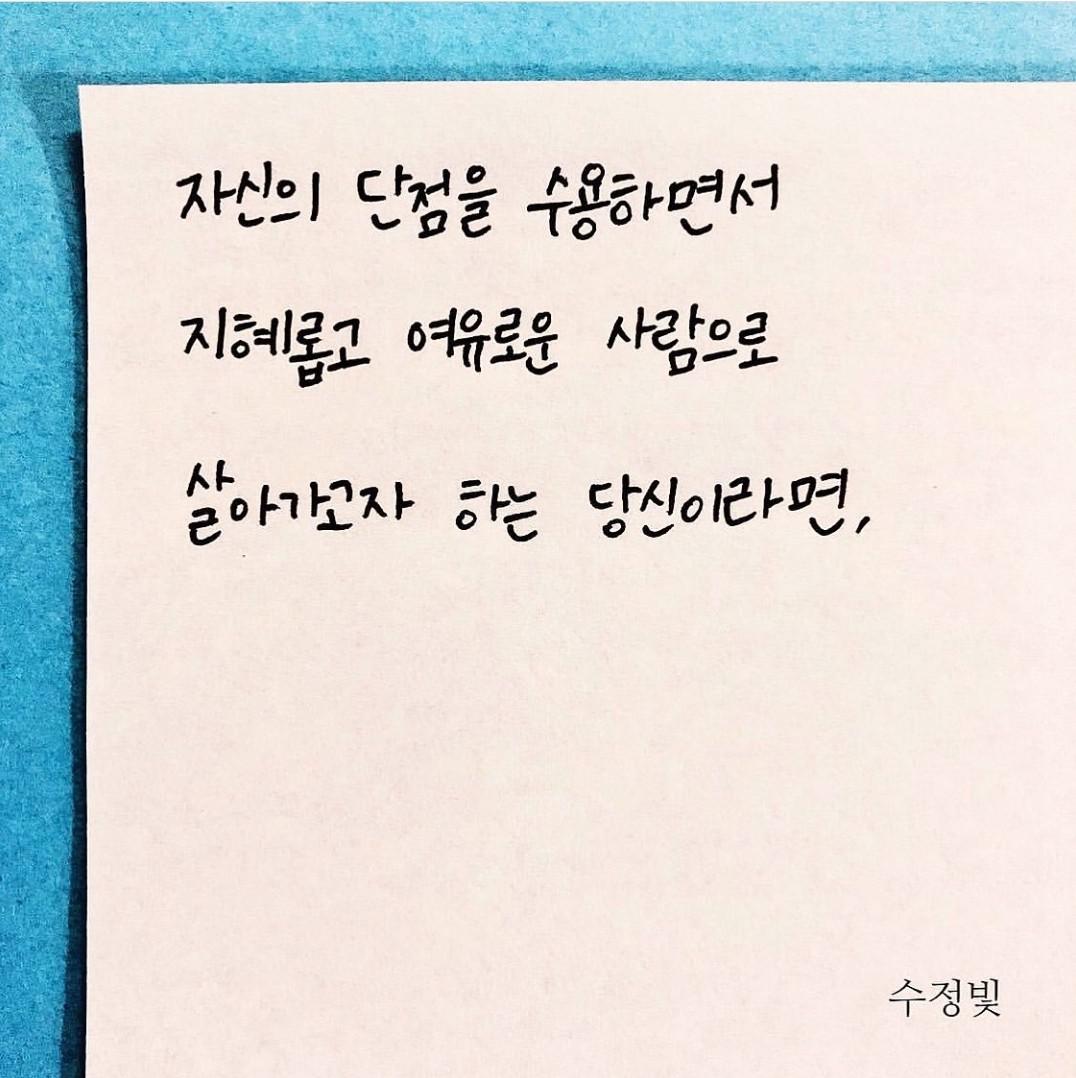 자신의 단점을 수용하면서
지혜롭고 여유로운 사람으로
살아가고자 하는 당신이라면,
수정빛